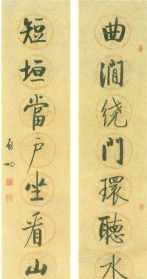 曲澗绕門環聽水
短垣當户坐看山
啟功